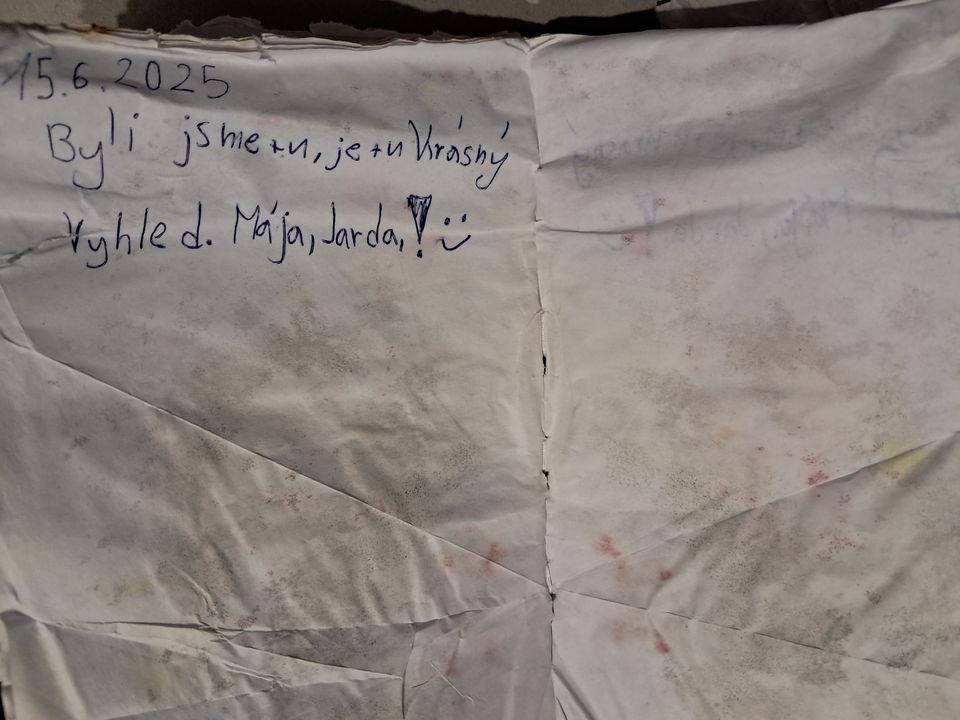 15.6.2025
Byli jsme tu, je tu krásný
Vyhled. Mája, Jarda, ! :)